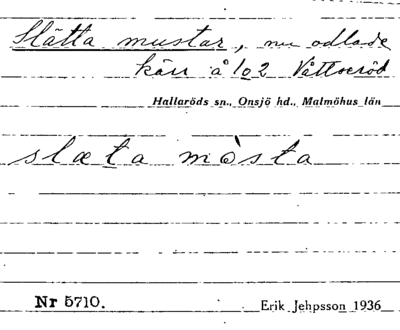 Slätta mustar, nu odlade
kärr å 1/02 Våttseröd
Hallaröds sn., Onsjö hd., Malmöhus län
slæta mòsta
Nr 5710.
Erik Jehpsson 1936